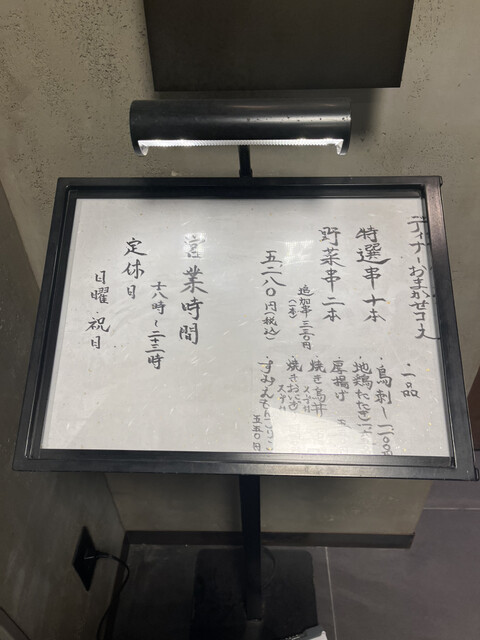 ディナーおまかせコース
特選串十本
野菜串二本
追加串三三〇円
(一本)
五、二八〇円(税込)
・一品
・鳥刺し一、一〇〇
・地鶏たたき
・厚揚げ
・焼き鳥丼
スープ付
・焼きおにぎり
スープ付
五五〇円
営業時間
十八時〜二十三時
定休日
日曜、祝日